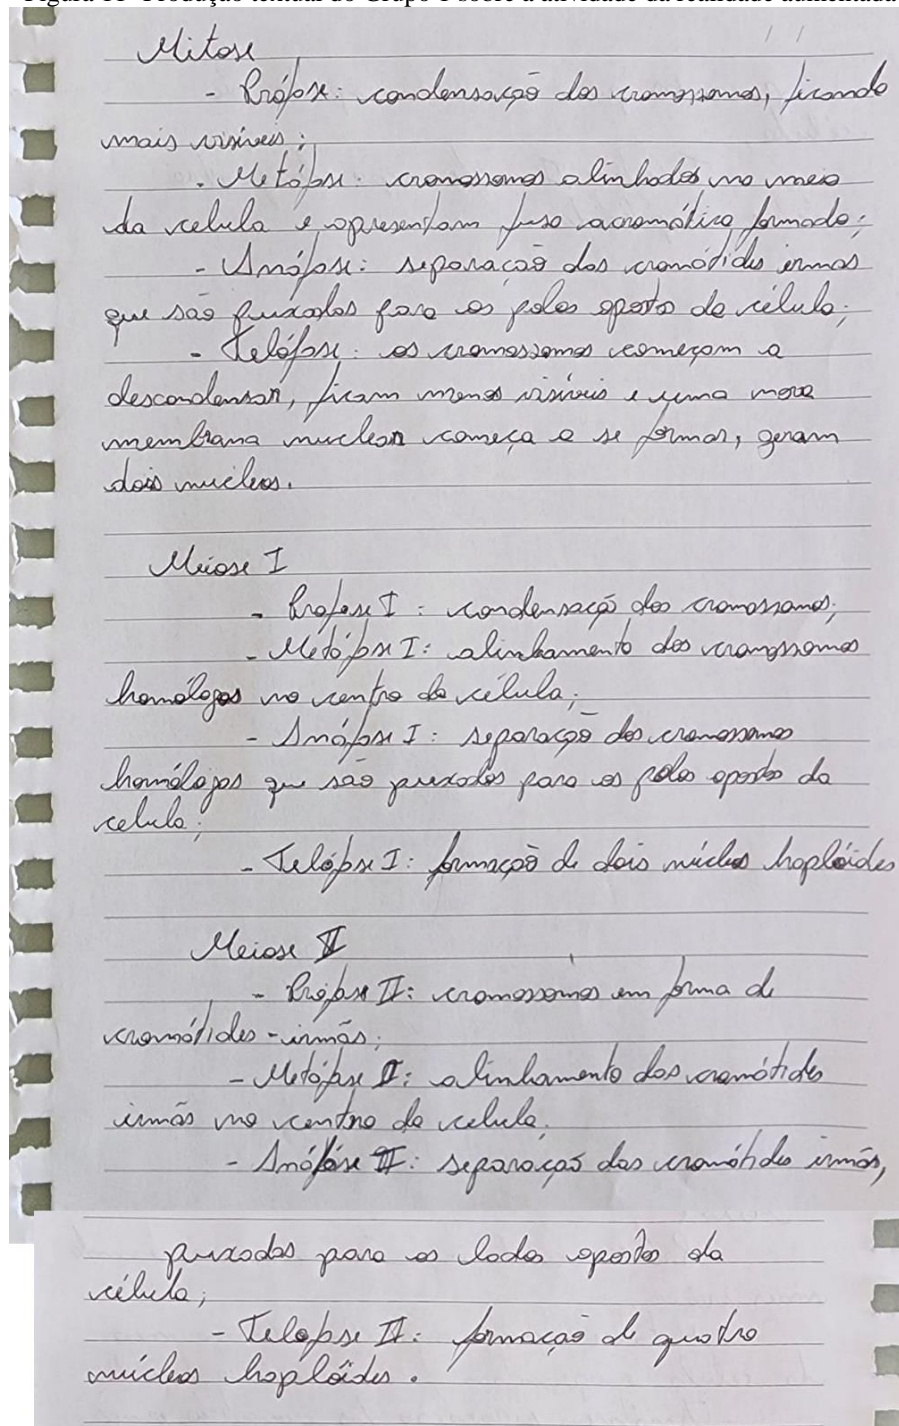 Figura 11- Produção textual do Grupo 1 sobre a atividade da realidade aumentada
/ /
Mitose
- Prófase: condensação dos cromossomos, ficando
mais visíveis;
- Metáfase: cromossomos alinhados no meio
da celula e apresentam fuso acromático formado;
- Anáfase: separação das cromátides irmas
que são puxadas para os polos oposto da célula;
- Telófase: os cromossomos começam a
descondensar, ficam menos visíveis e uma nova
membrana nuclear começa a se formar, geram
dois nucleos.
Meiose I
- Profase I: condensaçã dos cromossomos;
- Metáfase I: alinhamento dos cromossomos
homólogos no centro da célula;
- Anáfase I: separação dos cromossomos
homólogos que são puxados para os polos opostos da
celula;
- Telófase I: formação de dois núcleos haplóides
Meiose II
- Prófase II: cromossomos em forma de
cromátides-irmãs;
- Metáfase II: alinhamento das cromátides
irmãs no centro da celula.
- Anáfase II: separação das cromátides irmãs,
puxadas para os lados opostos da
célula;
- Telofase II: formação de quatro
núcleos haplóides.